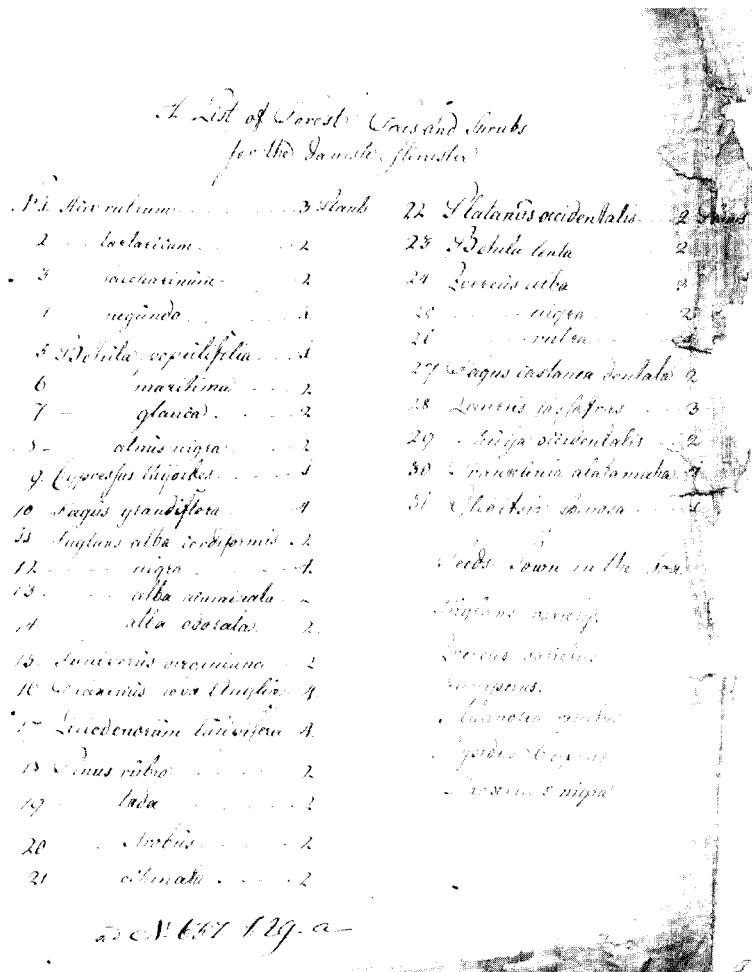 A List of Forest Trees and Shrubs
for the Danish Minister
No 1 Acer rubrum 3 Plants
2 tartaricum 2
3 saccharinum 2
4 negundo 1
5 Betula populifolia 1
6 maritima 2
7 glauca 2
8 alnus nigra 2
9 Cypressus thyoides 1
10 Fagus grandiflora 4
11 Juglans alba cordiformis 2
12 nigra 4
13 alba acuminata
14 alba odorata 2
15 Juniperus virginiana 2
16 Fraxinus nova Anglia 4
17 Liriodendrum tulipifera 4
18 Pinus rubra 2
19 tada 2
20 Strobus 2
21 echinata 2
22 Platanus occidentalis 2
23 Betula lenta 2
24 Quercus alba 3
25 nigra 2
26 rubra
27 Fagus castanea dentata 2
28 Laurus sassafras 3
29 Thuja occidentalis 2
30 Franklinia alatamaha
31 spinosa
Seeds Sown in the Box
Juglans variety
Quercus varieties
Juniperus
Magnolia
nigra
ad No 657 129. a